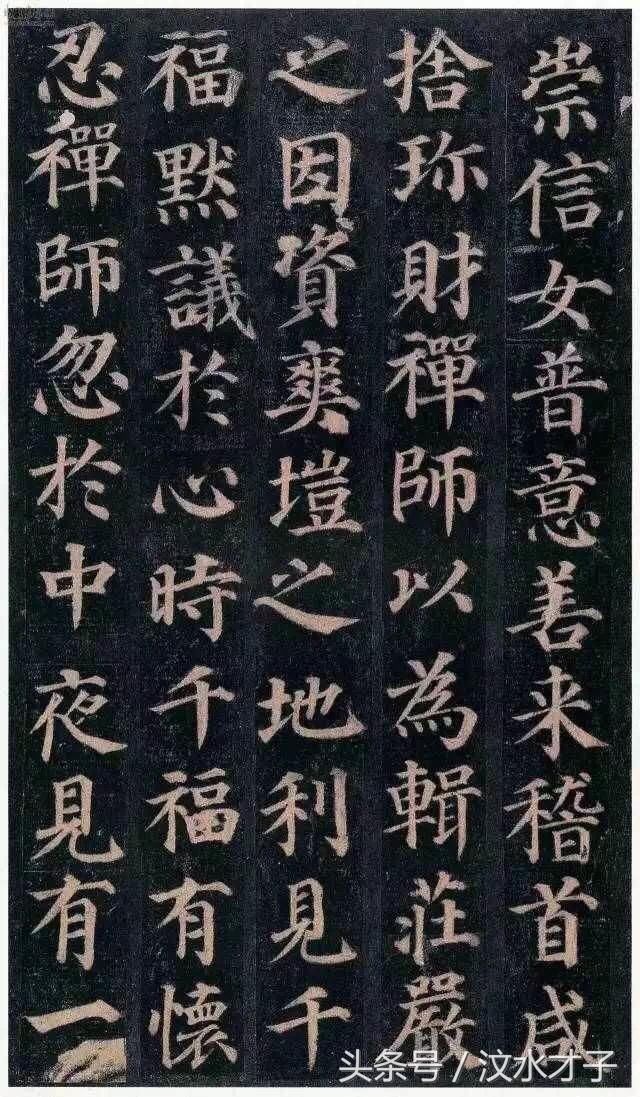 崇信女普意善来稽首咸
捨珎財禪師以為輯莊嚴
之因資爽塏之地利見千
福默議於心時千福有懷
忍禪師忽於中夜見有一
头条号／汶水才子